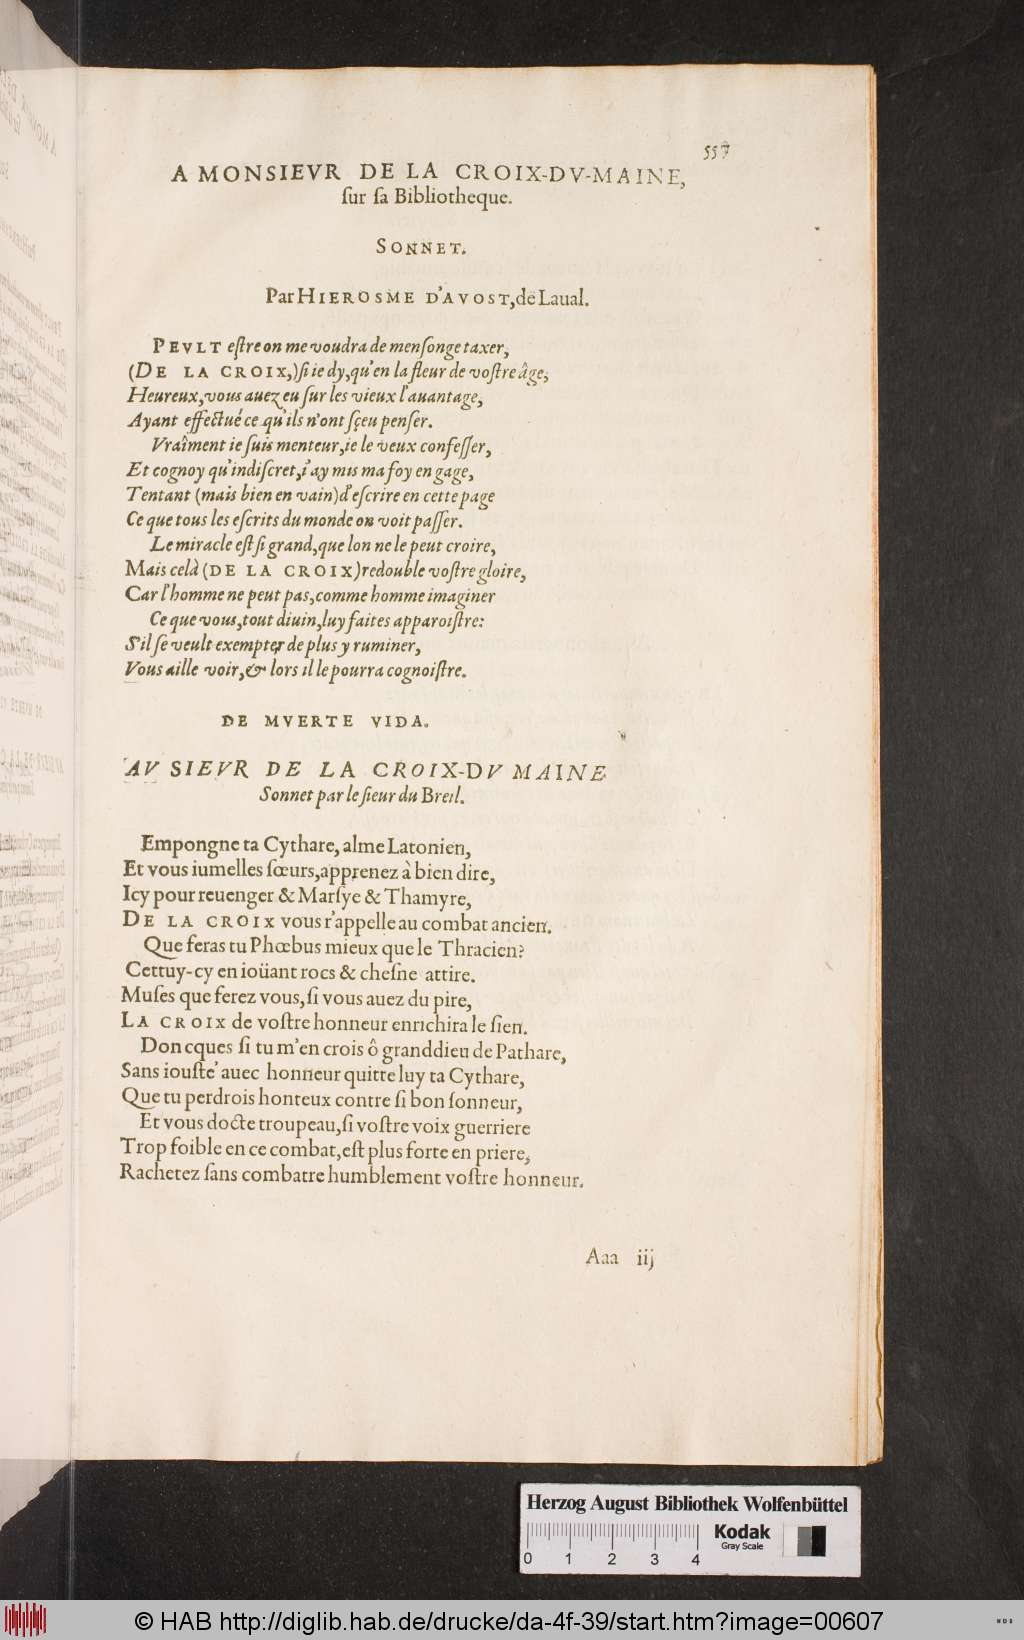 557
A MONSIEVR DE LA CROIX-DV-MAINE,
ſur ſa Bibliotheque.
SONNET.
Par HIEROSME D'AVOST, de Laual.
PEVLT eſtre on me voudra de menſonge taxer,
(DE LA CROIX,) ſi ie dy, qu'en la fleur de voſtre âge,
Heureux, vous auez eu ſur les vieux l'auantage,
Ayant effectué ce qu'ils n'ont ſçeu penſer.
Vraîment ie ſuis menteur, ie le veux confeſſer,
Et cognoy qu'indiſcret, i'ay mis ma foy en gage,
Tentant (mais bien en vain) d'eſcrire en cette page
Ce que tous les eſcrits du monde on voit paſſer.
Le miracle eſt ſi grand, que lon ne le peut croire,
Mais celà (DE LA CROIX) redouble voſtre gloire,
Car l'homme ne peut pas, comme homme imaginer
Ce que vous, tout diuin, luy faites apparoiſtre:
S'il ſe veult exempter de plus y ruminer,
Vous aille voir, & lors il le pourra cognoiſtre.
DE MVERTE VIDA.
AV SIEVR DE LA CROIX-DV MAINE
Sonnet par le ſieur du Breil.
Empongne ta Cythare, alme Latonien,
Et vous iumelles ſœurs, apprenez à bien dire,
Icy pour reuenger & Marſye & Thamyre,
DE LA CROIX vous r'appelle au combat ancien.
Que feras tu Phœbus mieux que le Thracien?
Cettuy-cy en ioüant rocs & cheſne attire.
Muſes que ferez vous, ſi vous auez du pire,
LA CROIX de voſtre honneur enrichira le ſien.
Doncques ſi tu m'en crois ô grand dieu de Pathare,
Sans iouſte' auec honneur quitte luy ta Cythare,
Que tu perdrois honteux contre ſi bon ſonneur,
Et vous docte troupeau, ſi voſtre voix guerriere
Trop foible en ce combat, eſt plus forte en priere,
Rachetez ſans combatre humblement voſtre honneur.
Aaa iij
Herzog August Bibliothek Wolfenbüttel
Kodak
Gray Scale
0 1 2 3 4
© HAB http://diglib.hab.de/drucke/da-4f-39/start.htm?image=00607